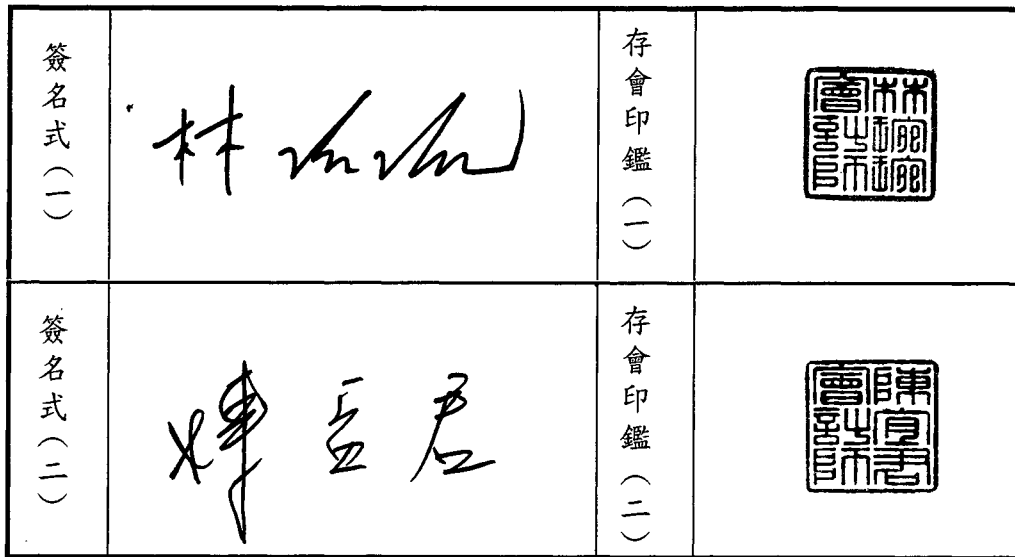 簽名式(一)
林琬琬
存會印鑑(一)
林琬琬
會計師
簽名式(二)
陳宜君
存會印鑑(二)
陳宜君
會計師